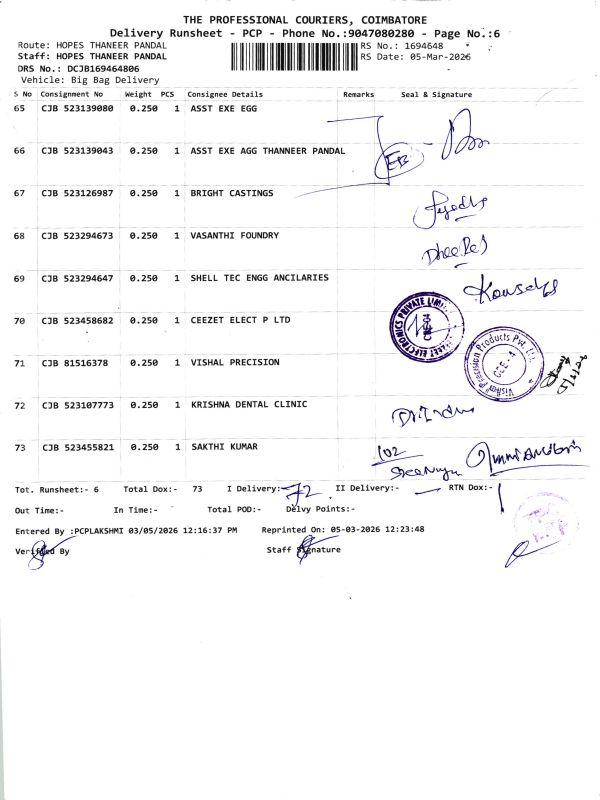 THE PROFESSIONAL COURIERS, COIMBATORE
Delivery Runsheet - PCP - Phone No.:9047080280 - Page No.:6
Route: HOPES THANEER PANDAL
RS No.: 1694648
Staff: HOPES THANEER PANDAL
RS Date: 05-Mar-2026
DRS No.: DCJB169464806
Vehicle: Big Bag Delivery
S No Consignment No Weight PCS Consignee Details Remarks Seal & Signature
65 CJB 523139080 0.250 1 ASST EXE EGG
66 CJB 523139043 0.250 1 ASST EXE AGG THANNEER PANDAL
EB
67 CJB 523126987 0.250 1 BRIGHT CASTINGS
68 CJB 523294673 0.250 1 VASANTHI FOUNDRY
69 CJB 523294647 0.250 1 SHELL TEC ENGG ANCILARIES
70 CJB 523458682 0.250 1 CEEZET ELECT P LTD
71 CJB 81516378 0.250 1 VISHAL PRECISION
Vishal Precision Products Pvt. Ltd.
72 CJB 523107773 0.250 1 KRISHNA DENTAL CLINIC
73 CJB 523455821 0.250 1 SAKTHI KUMAR
102
Tot. Runsheet:- 6 Total Dox:- 73 I Delivery:- 72 II Delivery:- — RTN Dox:- 1
Out Time:- In Time:- Total POD:- Delvy Points:-
Entered By :PCPLAKSHMI 03/05/2026 12:16:37 PM Reprinted On: 05-03-2026 12:23:48
Verified By Staff Signature